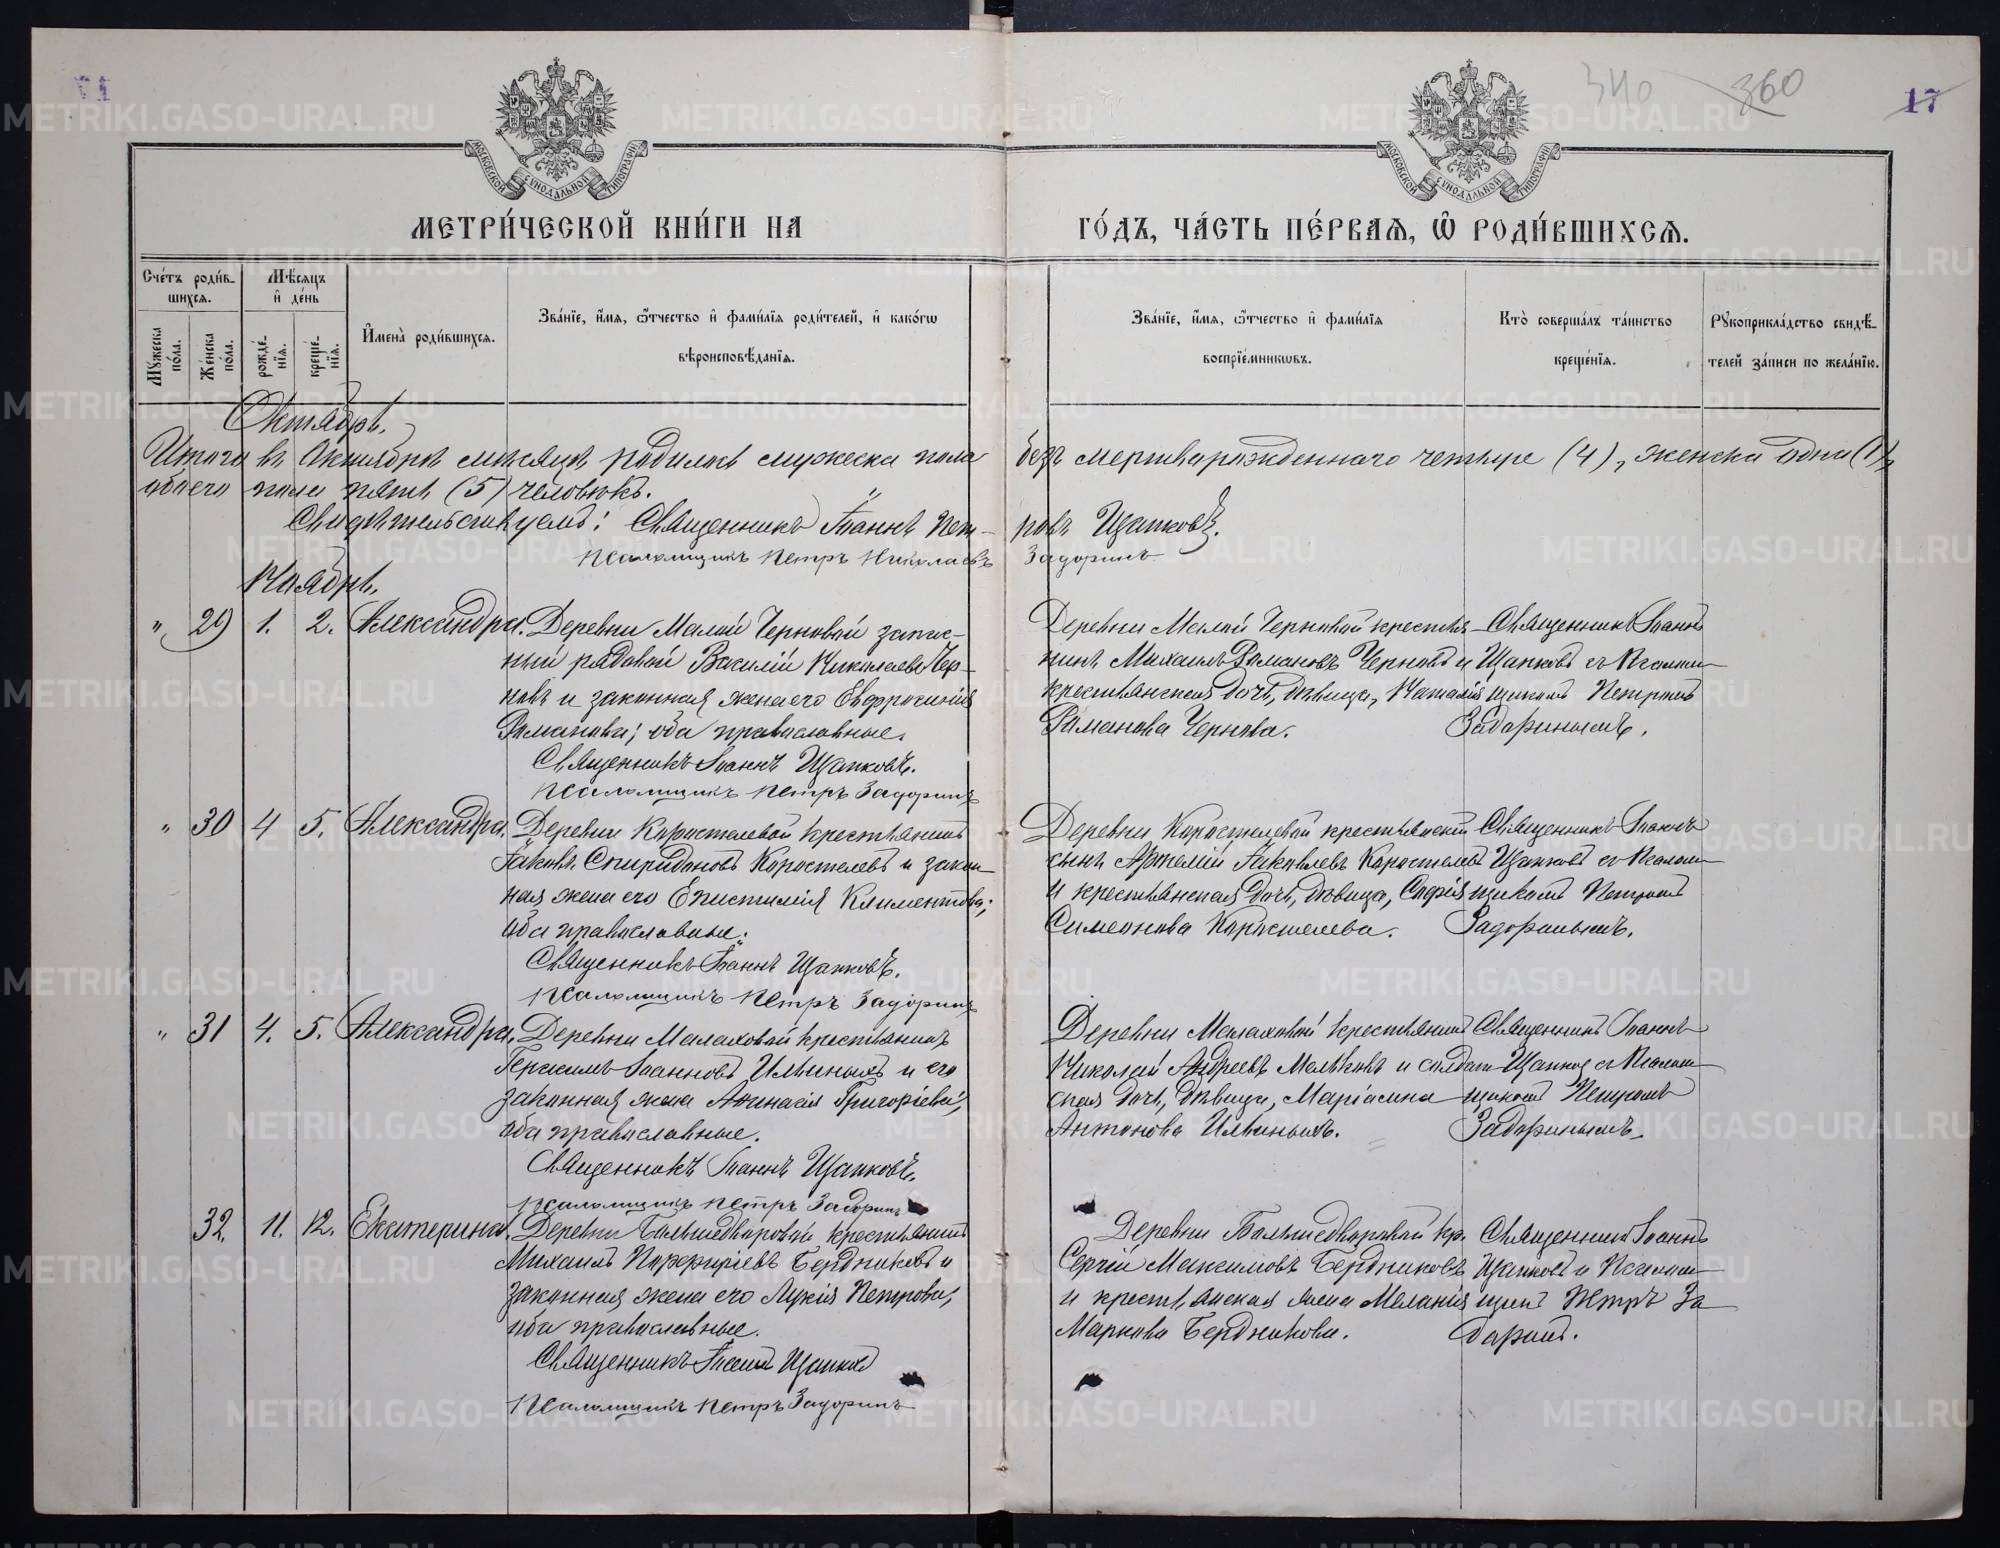 340 360 17
МОСКОВСКОЙ СУНОДАЛЬНОЙ ТИПОГРАФІИ
МОСКОВСКОЙ СУНОДАЛЬНОЙ ТИПОГРАФІИ
МЕТРИ́ЧЕСКОЙ КНИ́ГИ НА ГО́ДЪ, ЧА́СТЬ ПЕ́РВАѦ, Ѽ РОДИ́ВШИХСѦ.
Сче́тъ роди́в-
шихсѧ.
Мꙋжеска по́ла.
Же́нска по́ла.
Мѣ́сѧцъ
и҆ де́нь
рожде́-
нїѧ.
креще́-
нїѧ.
И҆мена̀ роди́вшихсѧ.
Зва́нїе, и҆́мѧ, ѻ҆́тчество и҆ фами́лїѧ роди́телей, и҆ како́гѡ
вѣроисповѣ́данїѧ.
Зва́нїе, и҆́мѧ, ѻ҆́тчество и҆ фами́лїѧ
воспрїе́мникѡвъ.
Кто̀ соверша́лъ та́инство
креще́нїѧ.
Рꙋкоприкла́дство свидѣ́-
телей за́писи по жела́нїю.
Октябрь.
Итого въ Октябрѣ мѣсяцѣ родилось мужеска пола безъ мертворожденнаго четыре (4), женска одна (1),
обоего пола пять (5) человѣкъ.
Свидѣтельствуемъ: Священникъ Іоаннъ Пет-ровъ Щапковъ.
Псаломщикъ Петръ Николаевъ Задоринъ
Ноябрь.
" 29 1. 2. Александра.
Деревни Малой Черновой запас-
ный рядовой Василій Николаевъ Чер-
новъ и законная жена его Евфросинія
Романова; оба православные.
Священникъ Іоаннъ Щапковъ.
Псаломщикъ Петръ Задоринъ
Деревни Малой Черновой крестья-
нинъ Михаилъ Романовъ Черновъ и
крестьянская дочь, дѣвица, Наталія
Романова Чернова.
Священникъ Іоаннъ
Щапковъ съ Псалом-
щикомъ Петромъ
Задоринымъ.
" 30 4 5. Александра.
Деревни Коростелевой крестьянинъ
Іаковъ Спиридоновъ Коростелевъ и закон-
ная жена его Епистимія Климентова;
оба православные.
Священникъ Іоаннъ Щапковъ.
Псаломщикъ Петръ Задоринъ
Деревни Коростелевой крестьянскій
сынъ Артемій Іаковлевъ Коростелевъ
и крестьянская дочь, дѣвица, Софія
Симеонова Коростелева.
Священникъ Іоаннъ
Щапковъ съ Псалом-
щикомъ Петромъ
Задоринымъ.
" 31 4. 5. Александра.
Деревни Малаховой крестьянинъ
Герасимъ Іоанновъ Ильиныхъ и его
законная жена Афанасія Григоріева;
оба православные.
Священникъ Іоаннъ Щапковъ.
Псаломщикъ Петръ Задоринъ
Деревни Малаховой крестьянинъ
Николай Андреевъ и солдат-
ская дочь, дѣвица, Маріамна
Антонова Ильиныхъ.
Священникъ Іоаннъ
Щапковъ съ Псалом-
щикомъ Петромъ
Задоринымъ.
32. 11. 12. Екатерина.
Деревни Большедворовой крестьянинъ
Михаилъ Порфиріевъ Бердниковъ и
законная жена его Лукія Петрова;
оба православные.
Священникъ Іоаннъ Щапковъ
Псаломщикъ Петръ Задоринъ
Деревни Большедворовой кр.
Сергій Максимовъ Бердниковъ
и крестьянская жена Меланія
Маркова Бердникова.
Священникъ Іоаннъ
Щапковъ и Псалом-
щикъ Петръ За-
доринъ.
METRIKI.GASO-URAL.RU